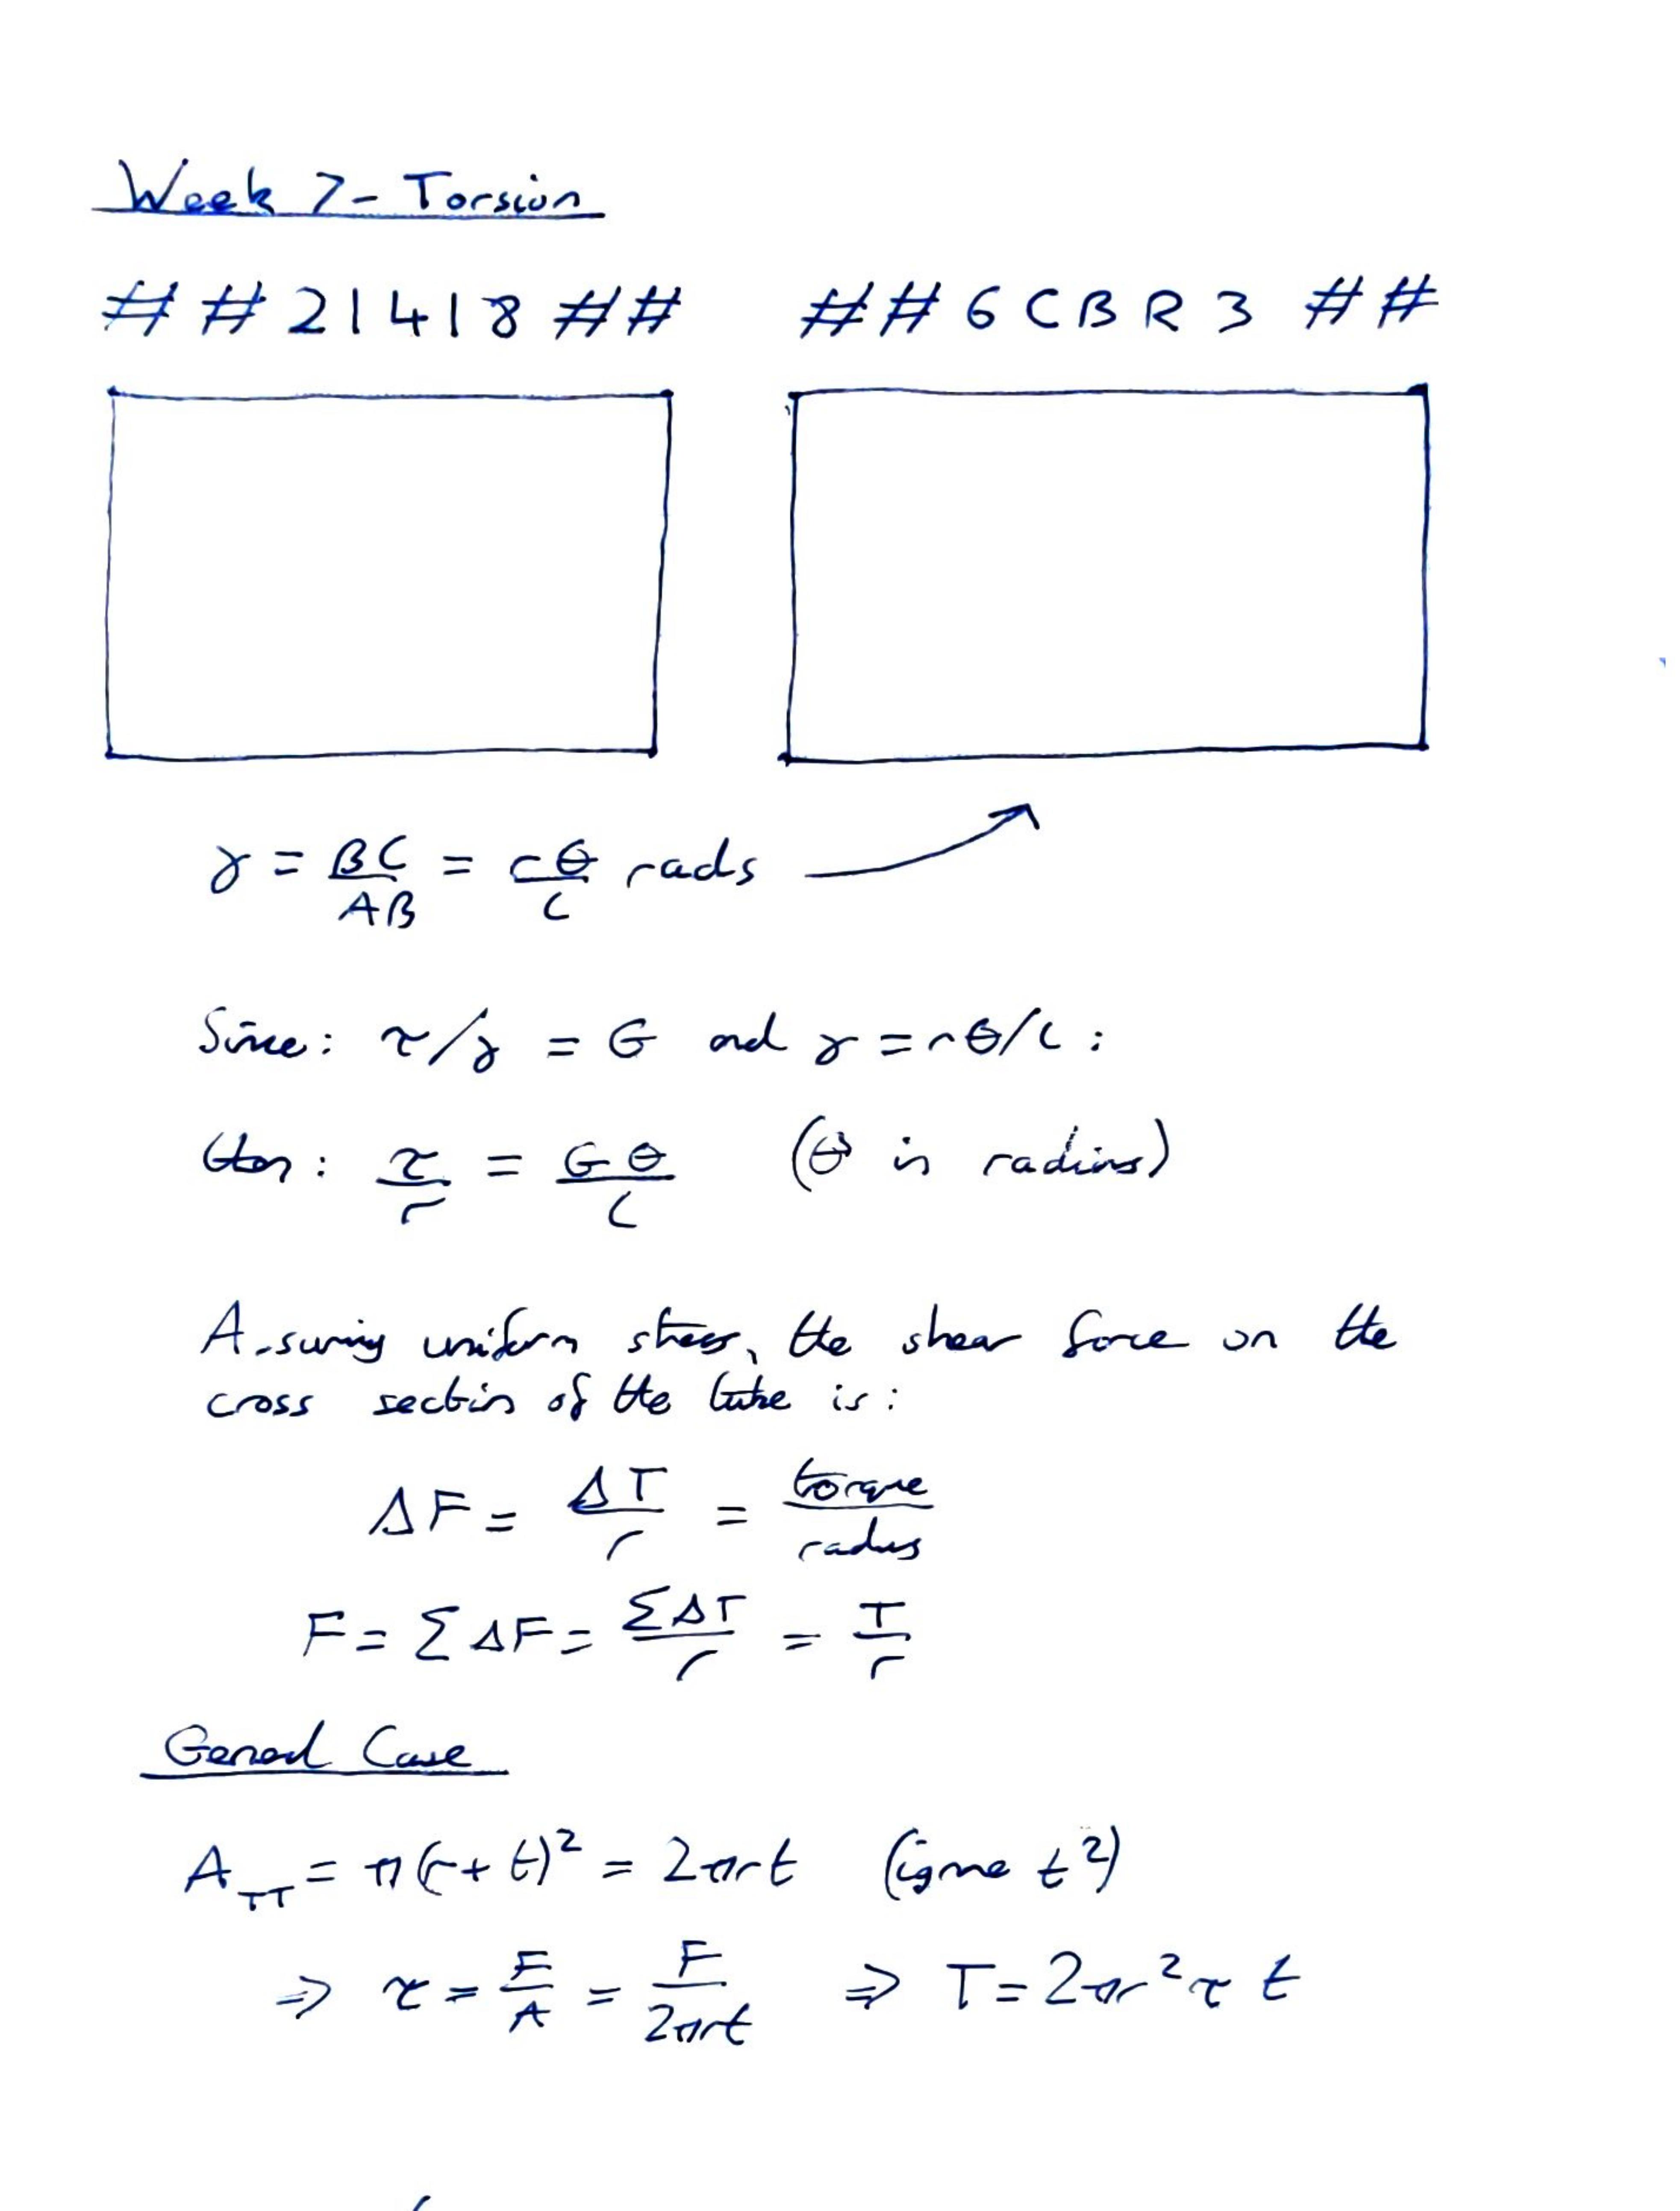 Week 7 - Torsion
##21418## ##6CBR3##
γ = BC/AB = rθ/L rads
Since: τ/γ = G and γ = rθ/L :
then: τ/r = Gθ/L (θ in radians)
Assuming uniform stress, the shear force on the
cross section of the tube is:
ΔF = ΔT/r = torque/radius
F = Σ ΔF = ΣΔT/r = T/r
General Case
A_TT = π(r + t)² = 2πrt (ignore t²)
⇒ τ = F/A = F/2πrt ⇒ T = 2πr²τ t